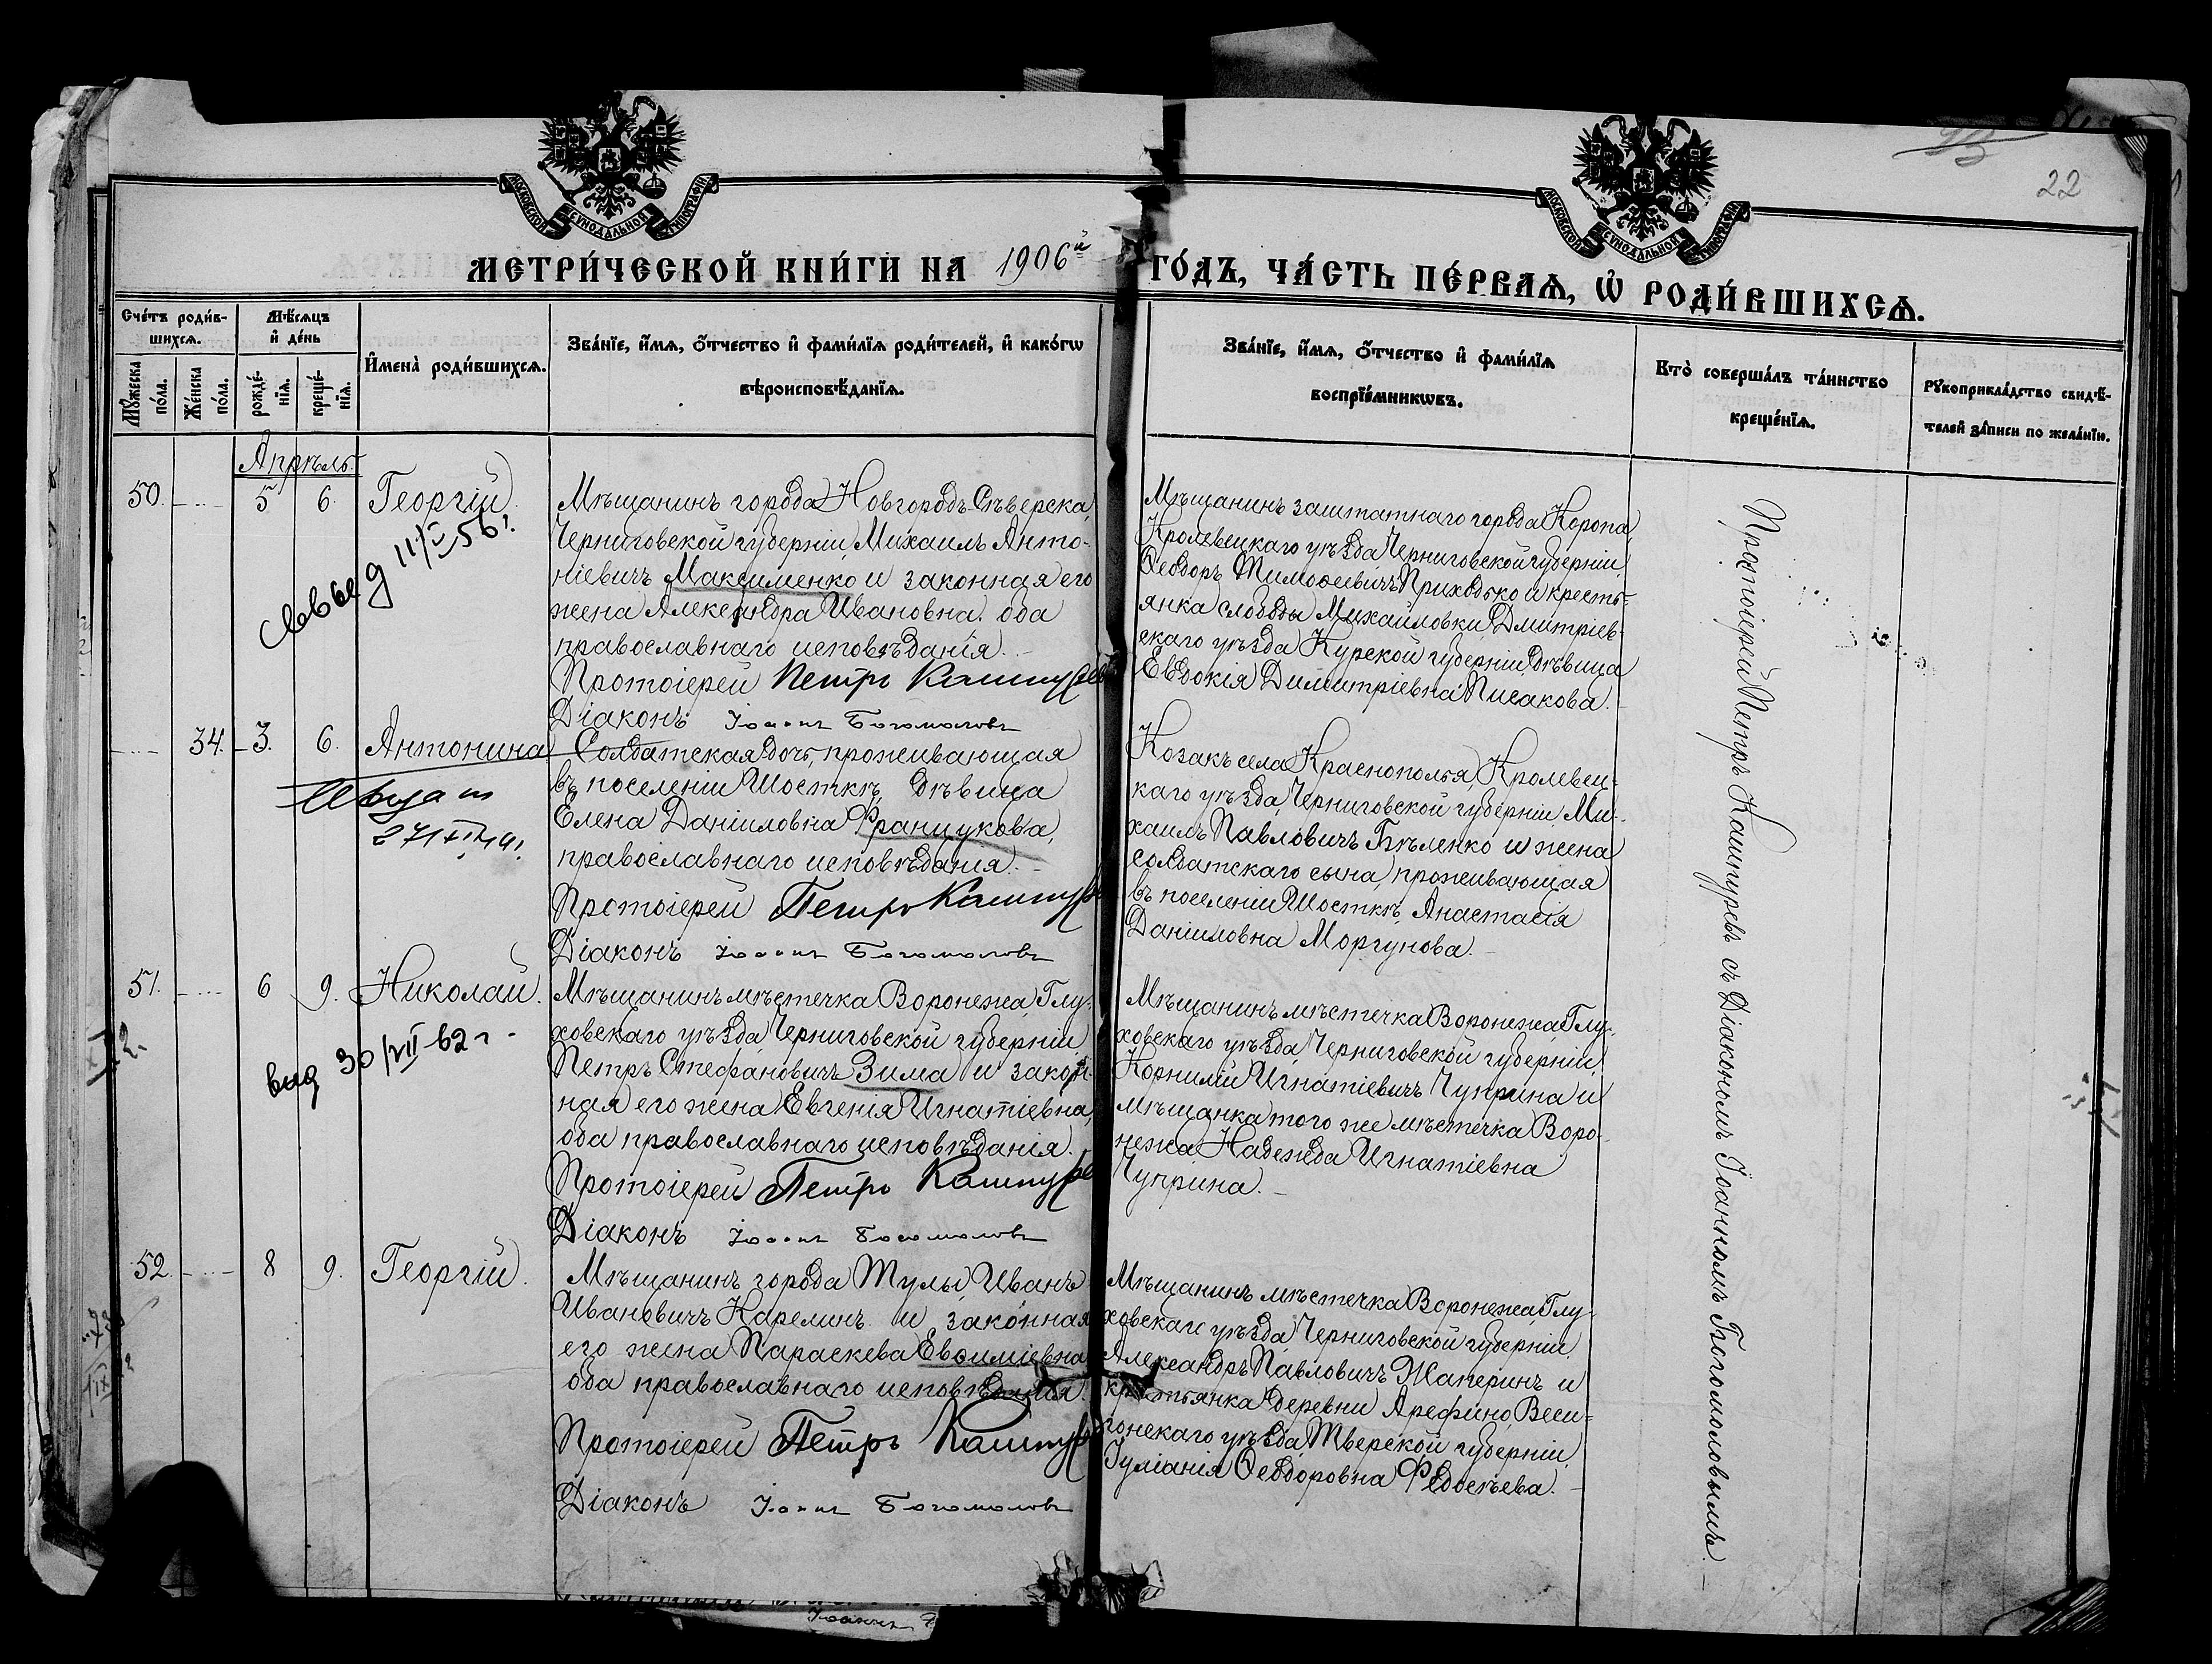 22
МОСКОВСКОЙ СѴНОДАЛЬНОЙ ТѴПОГРАФІИ
МОСКОВСКОЙ СѴНОДАЛЬНОЙ ТѴПОГРАФІИ
МЕТРИ́ЧЕСКОЙ КНИ́ГИ НА 1906й ГО́ДЪ, ЧА́СТЬ ПЕ́РВАѦ, Ѡ҆ РОДИ́ВШИХСѦ.
Сче́тъ роди́в-
шихсѧ.
Мѣ́сѧцъ
и҆ де́нь
И҆мена̀ роди́вшихсѧ.
Зва́нїе, и҆́мѧ, ѻ҆́тчество и҆ фами́лїѧ роди́телей, и҆ како́гѡ
вѣроисповѣ́данїѧ.
Зва́нїе, и҆́мѧ, ѻ҆́тчество и҆ фами́лїѧ
воспрїе́мникѡвъ.
Кто̀ соверша́лъ та́инство
креще́нїѧ.
Рꙋкоприкла́дство свидѣ́-
телей за́писи по жела́нїю.
Мꙋ́жеска
по́ла.
Же́нска
по́ла.
рожде́-
нїѧ.
креще́-
нїѧ.
Апрѣль.
50. 5 6. Георгій
11/V-56г.
Мѣщанинъ города Новгородъ-Сѣверска,
Черниговской губерніи, Михаилъ Анто-
ніевичъ Максименко и законная его
жена Александра Ивановна, оба
православнаго исповѣданія.
Протоіерей Петръ Кашпуревъ
Діаконъ Іоаннъ Богомоловъ
Мѣщанинъ заштатнаго города Коропа,
Кролевецкаго уѣзда, Черниговской губерніи,
Ѳеодоръ Тимоѳеевичъ Приходько и кресть-
янка слободы Михайловки Дмитріев-
скаго уѣзда Курской губерніи, дѣвица
Евдокія Димитріевна Писакова.
34. 3. 6. Антонина
Солдатская дочь, проживающая
въ поселеніи Шосткѣ, дѣвица
Елена Даніиловна Францукова,
православнаго исповѣданія.
Протоіерей Петръ Кашпур
Діаконъ Іоаннъ Богомоловъ
Козакъ села Краснополья, Кролевец-
каго уѣзда, Черниговской губерніи, Ми-
хаилъ Павловичъ Бѣленко и жена
солдатскаго сына, проживающая
въ поселеніи Шосткѣ, Анастасія
Даніиловна Моргунова.
51. 6 9. Николай.
вид 30/VII-62г-
Мѣщанинъ мѣстечка Воронежа, Глу-
ховскаго уѣзда, Черниговской губерніи,
Петръ Стефановичъ Зима и закон-
ная его жена Евгенія Игнатіевна,
оба православнаго исповѣданія.
Протоіерей Петръ Кашпуре
Діаконъ Іоаннъ Богомоловъ
Мѣщанинъ мѣстечка Воронежа, Глу-
ховскаго уѣзда, Черниговской губерніи,
Корнилій Игнатіевичъ Чуприна и
мѣщанка того же мѣстечка Воро-
нежа Надежда Игнатіевна
Чуприна.
52. 8 9. Георгій.
Мѣщанинъ города Тулы, Иванъ
Ивановичъ Карелинъ и законная
его жена Параскева Евѳиміевна,
оба православнаго исповѣданія.
Протоіерей Петръ Кашпур
Діаконъ Іоаннъ Богомоловъ
Мѣщанинъ мѣстечка Воронежа, Глу-
ховскаго уѣзда, Черниговской губерніи,
Александръ Павловичъ Жаперинъ и
крестьянка деревни Арефино, Веси-
гонскаго уѣзда, Тверской губерніи,
Іуліанія Ѳеодоровна Федосѣева.
Протоіерей Петръ Кашпуревъ съ Діакономъ Іоанномъ Богомоловымъ.